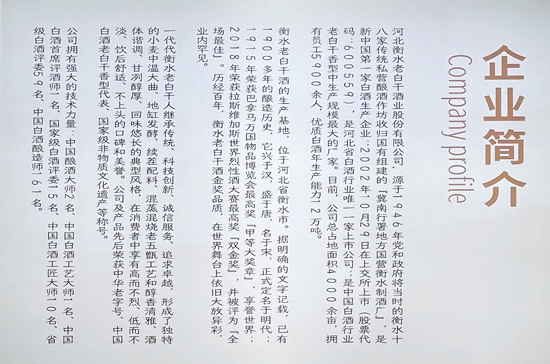 企业简介
Company profile
河北衡水老白干酒业股份有限公司,源于1946年党和政府将当时的衡水十
八家传统私营酿酒作坊收归国有组建的“冀南行署地方国营衡水制酒厂”,是
新中国第一家白酒生产企业;2002年10月29日在上交所上市(股票代
码:600559),是河北省白酒行业唯一一家上市公司;是中国白酒行业
老白干香型中生产规模最大的厂家。目前,公司总占地面积4000余亩,拥
有员工5000余人,优质白酒年生产能力12万吨。
衡水老白干酒的生产基地,位于河北省衡水市。据明确的文字记载,已有
1900多年的酿造历史,它兴于汉,盛于唐,名于宋,正式定名于明代;
1915年荣获巴拿马万国物品博览会最高奖“甲等大奖章”,享誉世界;
2018年荣获拉斯维加斯世界烈性酒大赛最高奖“双金奖”,并被评为“全
场最佳”。历经百年,衡水老白干酒金奖品质,在世界舞台上依旧大放异彩,
业内罕见。
一代代衡水老白干人继承传统、科技创新、诚信服务、追求卓越,形成了独特
的小麦中温大曲、地缸发酵、续茬配料、混蒸混烧老五甑工艺和醇香清雅、酒
体谐调、甘冽醇厚、回味悠长的典型风格,在消费者中享有高而不烈、低而不
淡、饮后舒适、不上头的口碑和美誉。公司及产品先后荣获中华老字号、中国
白酒老白干香型代表、国家级非物质文化遗产等称号。
公司拥有强大的技术力量:中国酿酒大师2名、中国白酒工艺大师1名、中国
白酒首席评酒师1名、国家级白酒评委15名、中国白酒工匠大师10名、省
级白酒评委59名、中国白酒酿造师161名。